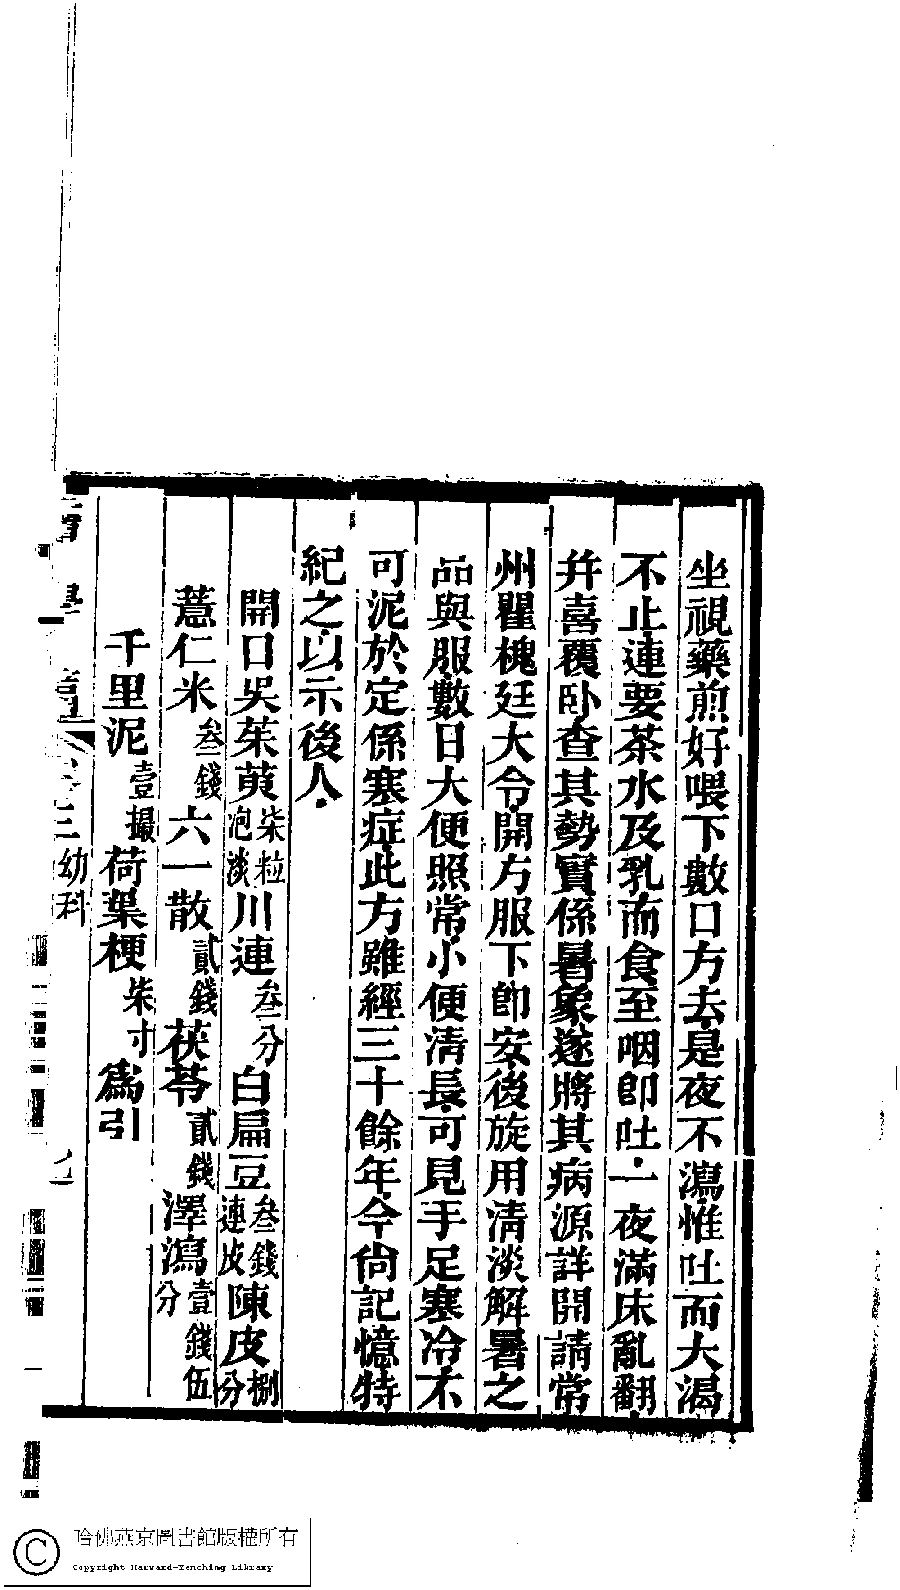 坐視藥煎好喂下數口方去是夜不瀉惟吐而大渴
不止連要茶水及乳而食至咽卽吐一夜滿床亂翻
幷喜覆卧查其勢實係暑象遂將其病源詳開請常
州瞿槐廷大令開方服下卽安後旋用清淡解暑之
品與服數日大便照常小便清長可見手足寒冷不
可泥於定係寒症此方雖經三十餘年今尙記憶特
紀之以示後人
開口吳茱萸柒粒泡淡川連叁分白扁豆叁錢連皮陳皮捌分
薏仁米叁錢六一散貳錢茯苓貳錢澤瀉壹錢伍分
千里泥壹撮荷葉梗柒寸爲引
幼科
哈佛燕京圖書館版權所有
Copyright Harvard-Yenching Library